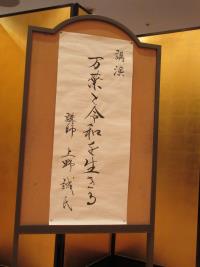 講演
万葉と令和を生きる
講師 上野誠氏